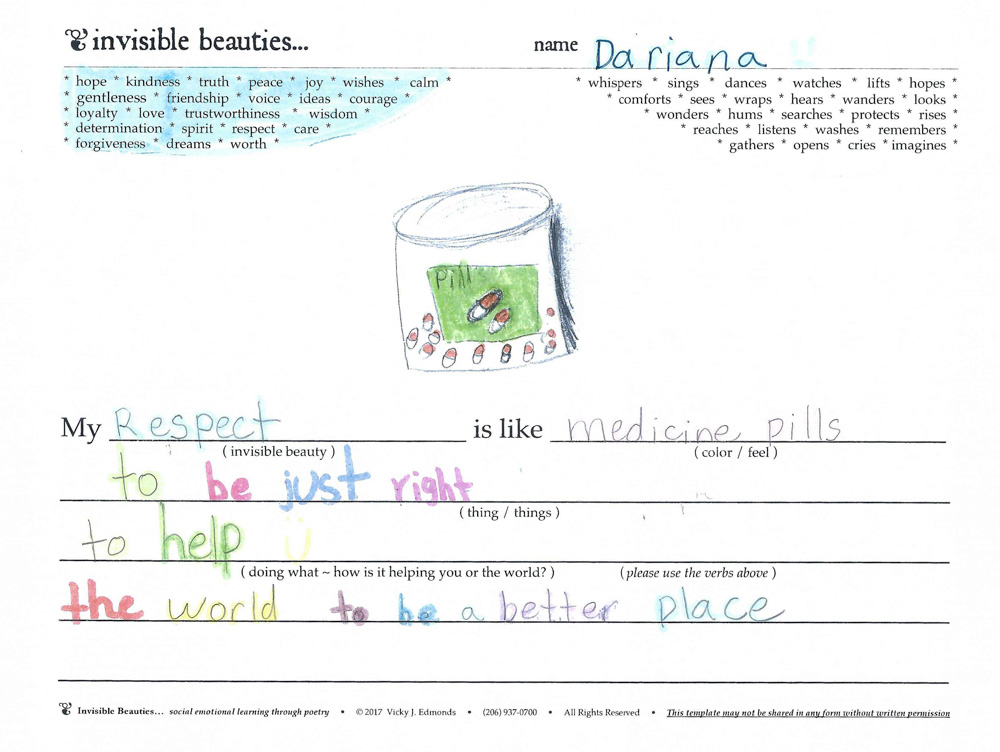 invisible beauties...
name Dariana
* hope * kindness * truth * peace * joy * wishes * calm *
* gentleness * friendship * voice * ideas * courage *
* loyalty * love * trustworthiness * wisdom *
* determination * spirit * respect * care *
* forgiveness * dreams * worth *
* whispers * sings * dances * watches * lifts * hopes *
* comforts * sees * wraps * hears * wanders * looks *
* wonders * hums * searches * protects * rises *
* reaches * listens * washes * remembers *
* gathers * opens * cries * imagines *
Pills
My Respect is like medicine pills
( invisible beauty ) ( color / feel )
to be just right
( thing / things )
to help
( doing what ~ how is it helping you or the world? ) ( please use the verbs above )
the world to be a better place
Invisible Beauties... social emotional learning through poetry • © 2017 Vicky J. Edmonds • (206) 937-0700 • All Rights Reserved • This template may not be shared in any form without written permission